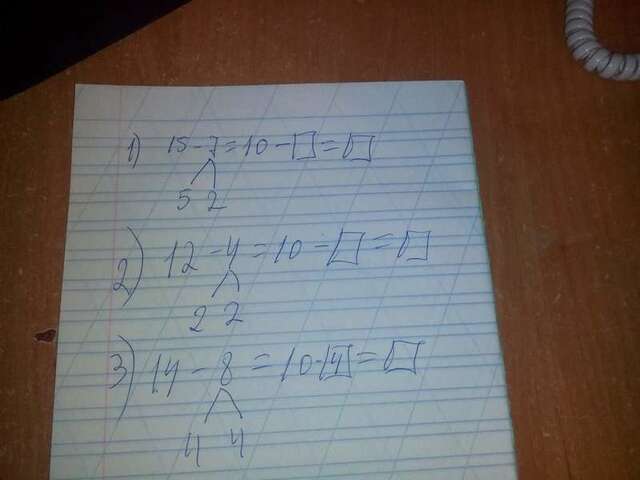 1) 15 - 7 = 10 - □ = □
5 2
2) 12 - 4 = 10 - □ = □
2 2
3) 14 - 8 = 10 - 4 = □
4 4